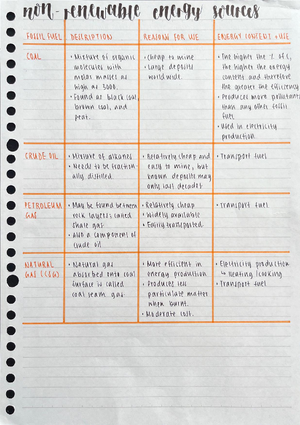 non-renewable energy sources
FOSSIL FUEL
DESCRIPTION
REASON FOR USE
ENERGY CONTENT + USE
COAL
• Mixture of organic
molecules with
molar masses as
high as 3000.
• Found as black coal,
brown coal, and
peat.
• Cheap to mine
• Large deposits
world wide.
• The higher the % of C,
the higher the energy
content and therefore
the greater the efficiency
• Produces more pollutants
than any other fossil
fuel.
• Used in electricity
production.
CRUDE OIL
• Mixture of alkanes
• Needs to be fraction-
ally distilled.
• Relatively cheap and
easy to mine, but
known deposits may
only last decades
• Transport fuel
PETROLEUM
GAS
• May be found between
rock layers called
shale gas
• Also a component of
crude oil
• Relatively cheap
• Widely available
• Easily transported.
• Transport fuel
NATURAL
GAS (CSG)
• Natural gas
absorbed into coal
surface is called
coal seam gas
• More efficient in
energy production
• Produces less
particulate matter
when burnt.
• Moderate cost.
• Electricity production
↳ heating/cooking.
• Transport fuel.